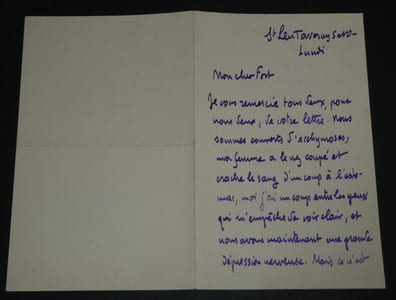 St Leu Taverny S et O -
Lundi
Mon cher Fort
Je vous remercie tous deux, pour
nous deux, de votre lettre. Nous
sommes couverts d'ecchymoses,
ma femme a le nez coupé et
crache le sang d'un coup à l'esto-
mac, moi j'ai un coup entre les yeux
qui m'empêche de voir clair, et
nous avons maintenant une grande
dépression nerveuse. Mais ce n'est